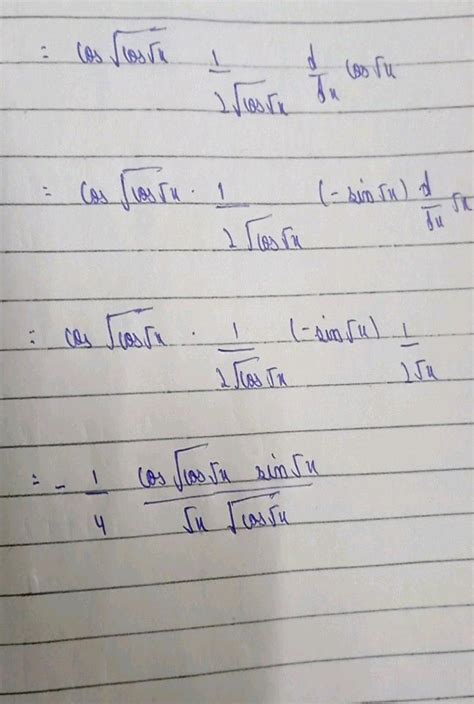 = cos √cos√x 1/2√cos√x d/dx cos√x
= cos √cos√x · 1/2√cos√x (-sin√x) d/dx √x
= cos √cos√x · 1/2√cos√x (-sin√x) 1/2√x
= - 1/4 cos√cos√x sin√x/√x √cos√x